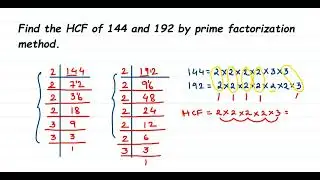 Find the HCF of 144 and 192 by prime factorization
method.
2 144
2 72
2 36
2 18
3 9
3 3
1
2 192
2 96
2 48
2 24
2 12
2 6
3 3
1
144 = 2×2×2×2×3×3
192 = 2×2×2×2×2×2×3
HCF = 2×2×2×2×3 =